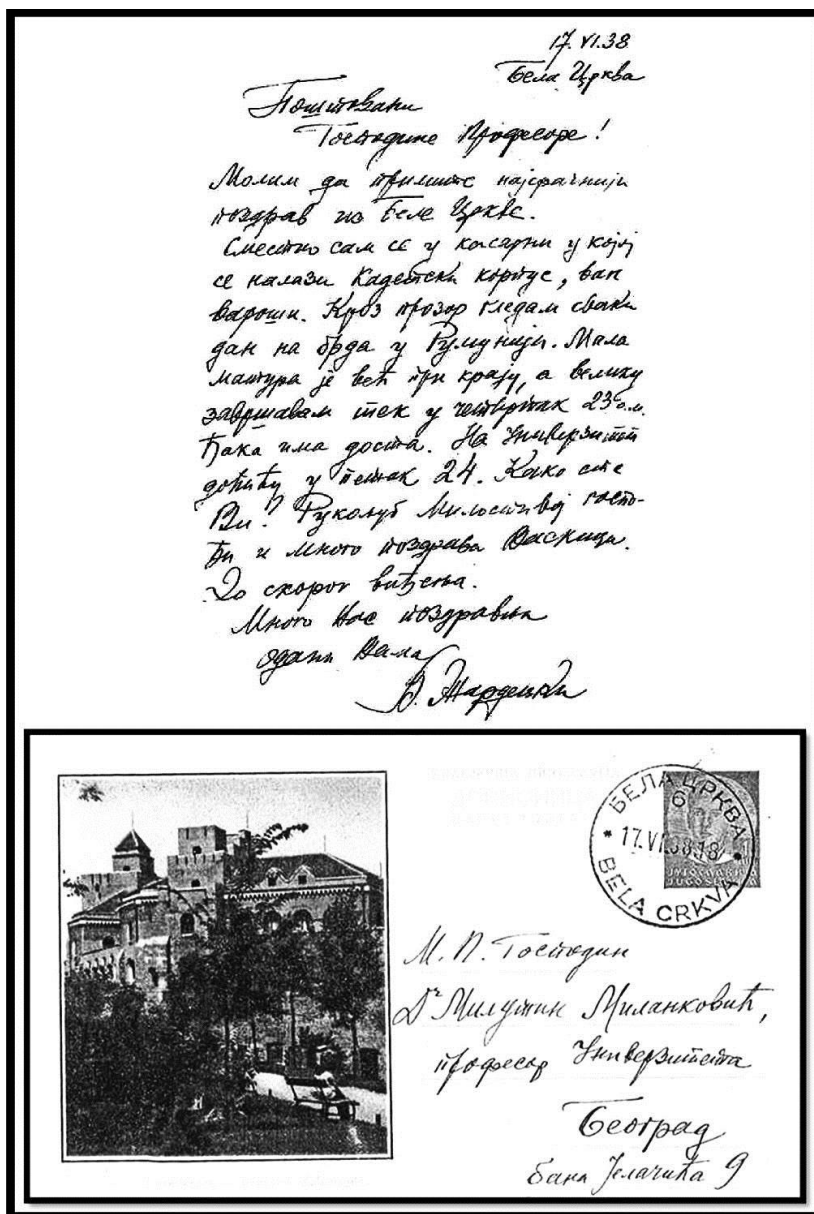 17. VI. 38.
Бела Црква
Поштовани
Господине Професоре!
Молим да примите најсрдачнији
поздрав из Беле Цркве.
Сместио сам се у касарни у којој
се налази Кадетски корпус, ван
вароши. Кроз прозор гледам сваки
дан на брда у Румунији. Мала
матура је већ при крају, а велику
завршавам тек у четвртак 23 о.м.
Ђака има доста. На Универзитет
доћићу у петак 24. Како сте
Ви? Рукољуб Милостивој госпо-
ђи и много поздрава Васкици.
До скорог виђења.
Много Вас поздравља
одани Вама
В. Жардецки
БЕЛА ЦРКВА
6
17.VI.38.18
BELA CRKVA
М. П. Господин
Dr Милутин Миланковић,
професор Универзитета
Београд
бана Јелачића 9